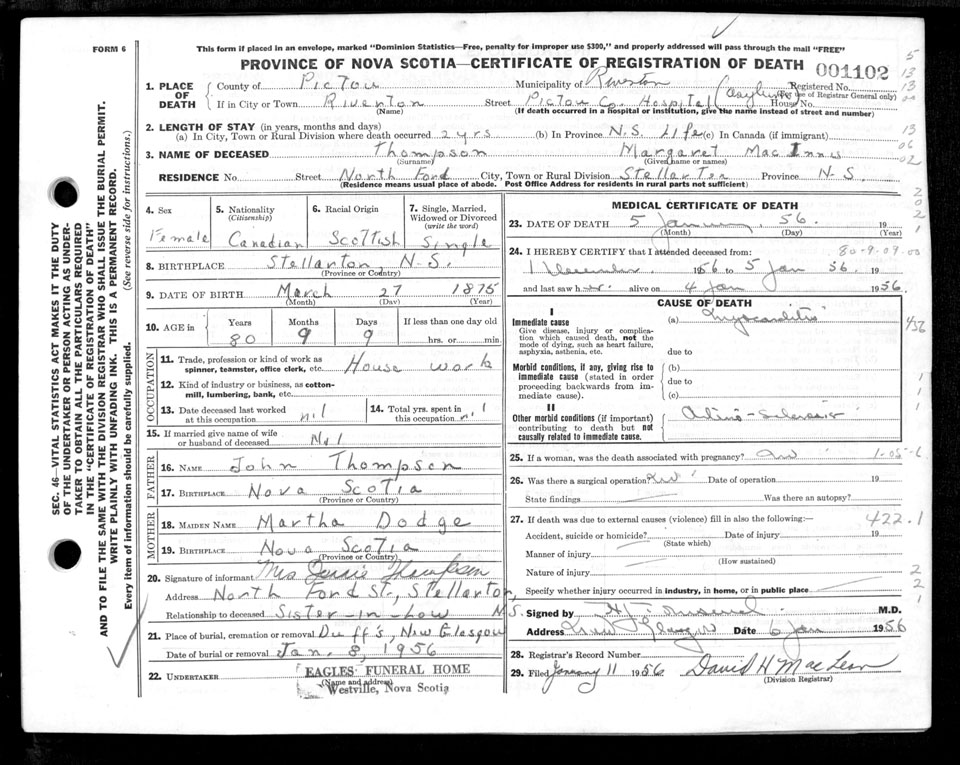 FORM 6
This form if placed in an envelope, marked "Dominion Statistics—Free, penalty for improper use $300," and properly addressed will pass through the mail "FREE"
PROVINCE OF NOVA SCOTIA—CERTIFICATE OF REGISTRATION OF DEATH
001102
1. PLACE OF DEATH
County of Pictou Municipality of Riverton Registered No.
(For use of Registrar General only)
If in City or Town Riverton Street Pictou Co. Hospital (asylum) House No.
(Name) (If death occurred in a hospital or institution, give the name instead of street and number)
2. LENGTH OF STAY (in years, months and days)
(a) In City, Town or Rural Division where death occurred 2 yrs (b) In Province N.S. Life (c) In Canada (if immigrant)
3. NAME OF DECEASED Thompson Margaret Mac Innis
(Surname) (Given name or names)
RESIDENCE No. Street North Ford City, Town or Rural Division Stellarton Province N.S.
(Residence means usual place of abode. Post Office Address for residents in rural parts not sufficient)
SEC. 46—VITAL STATISTICS ACT MAKES IT THE DUTY
OF THE UNDERTAKER OR PERSON ACTING AS UNDER-
TAKER TO OBTAIN ALL THE PARTICULARS REQUIRED
IN THE "CERTIFICATE OF REGISTRATION OF DEATH"
AND TO FILE THE SAME WITH THE DIVISION REGISTRAR WHO SHALL ISSUE THE BURIAL PERMIT.
WRITE PLAINLY WITH UNFADING INK. THIS IS A PERMANENT RECORD.
Every item of information should be carefully supplied. (See reverse side for instructions.)
4. Sex Female
5. Nationality (Citizenship) Canadian
6. Racial Origin Scottish
7. Single, Married, Widowed or Divorced (write the word) Single
8. BIRTHPLACE Stellarton, N.S.
(Province or Country)
9. DATE OF BIRTH March 27 1875
(Month) (Day) (Year)
10. AGE in Years 80 Months 9 Days 9 If less than one day old hrs. or min.
OCCUPATION
11. Trade, profession or kind of work as spinner, teamster, office clerk, etc. House work
12. Kind of industry or business, as cotton-mill, lumbering, bank, etc.
13. Date deceased last worked at this occupation nil
14. Total yrs. spent in this occupation nil
15. If married give name of wife or husband of deceased Nil
FATHER
16. NAME John Thompson
17. BIRTHPLACE Nova Scotia
(Province or Country)
MOTHER
18. MAIDEN NAME Martha Dodge
19. BIRTHPLACE Nova Scotia
(Province or Country)
20. Signature of informant Mrs Thompson
Address North Ford St., Stellarton, N.S.
Relationship to deceased Sister-in-Law
21. Place of burial, cremation or removal Duff's, New Glasgow
Date of burial or removal Jan. 8, 1956
22. UNDERTAKER EAGLES' FUNERAL HOME
(Name and address)
Westville, Nova Scotia
MEDICAL CERTIFICATE OF DEATH
23. DATE OF DEATH 5 January 56. 19
(Month) (Day) (Year)
24. I HEREBY CERTIFY that I attended deceased from: 80-9-09-00
1 December 1956 to 5 Jan 56. 19
and last saw h alive on 4 Jan 1956.
CAUSE OF DEATH
I
Immediate cause
Give disease, injury or complication which caused death, not the mode of dying, such as heart failure, asphyxia, asthenia, etc.
(a) Myocarditis
due to
Morbid conditions, if any, giving rise to immediate cause (stated in order proceeding backwards from immediate cause).
(b)
due to
(c)
II
Other morbid conditions (if important) contributing to death but not causally related to immediate cause.
25. If a woman, was the death associated with pregnancy?
26. Was there a surgical operation Date of operation 19
State findings Was there an autopsy?
27. If death was due to external causes (violence) fill in also the following:— 422.1
Accident, suicide or homicide? Date of injury 19
(State which)
Manner of injury
(How sustained)
Nature of injury
Specify whether injury occurred in industry, in home, or in public place
Signed by M.D.
Address New Glasgow Date 6 Jan 1956
28. Registrar's Record Number
29. Filed January 11 1956 David H MacLean
(Division Registrar)